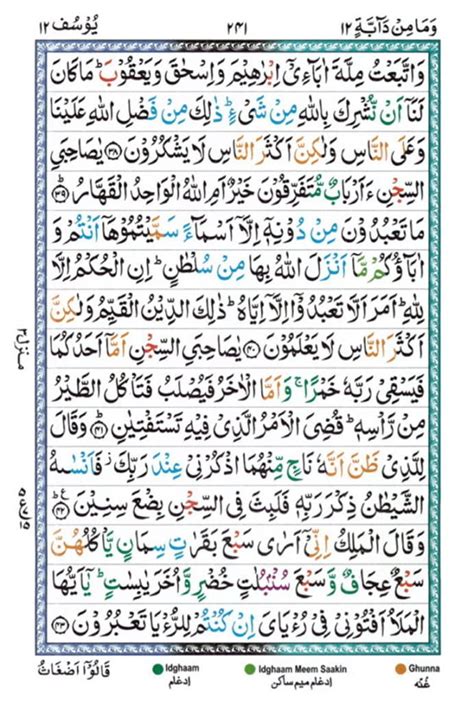 وَمَا مِنْ دَآبَّةٍ ١٢ ٢٤١ يُوْسُف ١٢
وَاتَّبَعْتُ مِلَّةَ اٰبَآءِيْٓ اِبْرٰهِيْمَ وَاِسْحٰقَ وَيَعْقُوْبَ ؕ مَا كَانَ
لَنَآ اَنْ نُّشْرِكَ بِاللّٰهِ مِنْ شَيْءٍ ؕ ذٰلِكَ مِنْ فَضْلِ اللّٰهِ عَلَيْنَا
وَعَلَى النَّاسِ وَلٰكِنَّ اَكْثَرَ النَّاسِ لَا يَشْكُرُوْنَ ﴿٣٨﴾ يٰصَاحِبَيِ
السِّجْنِ ءَاَرْبَابٌ مُّتَفَرِّقُوْنَ خَيْرٌ اَمِ اللّٰهُ الْوَاحِدُ الْقَهَّارُ ؕ ﴿٣٩﴾
مَا تَعْبُدُوْنَ مِنْ دُوْنِهٖٓ اِلَّآ اَسْمَآءً سَمَّيْتُمُوْهَآ اَنْتُمْ وَ
اٰبَآؤُكُمْ مَّآ اَنْزَلَ اللّٰهُ بِهَا مِنْ سُلْطٰنٍ ؕ اِنِ الْحُكْمُ اِلَّا
لِلّٰهِ ؕ اَمَرَ اَلَّا تَعْبُدُوْٓا اِلَّآ اِيَّاهُ ؕ ذٰلِكَ الدِّيْنُ الْقَيِّمُ وَلٰكِنَّ
اَكْثَرَ النَّاسِ لَا يَعْلَمُوْنَ ﴿٤٠﴾ يٰصَاحِبَيِ السِّجْنِ اَمَّآ اَحَدُكُمَا
فَيَسْقِيْ رَبَّهٗ خَمْرًا ۚ وَاَمَّا الْاٰخَرُ فَيُصْلَبُ فَتَاْكُلُ الطَّيْرُ
مِنْ رَّاْسِهٖ ؕ قُضِيَ الْاَمْرُ الَّذِيْ فِيْهِ تَسْتَفْتِيٰنِ ؕ ﴿٤١﴾ وَقَالَ
لِلَّذِيْ ظَنَّ اَنَّهٗ نَاجٍ مِّنْهُمَا اذْكُرْنِيْ عِنْدَ رَبِّكَ ؗ فَاَنْسٰىهُ
الشَّيْطٰنُ ذِكْرَ رَبِّهٖ فَلَبِثَ فِي السِّجْنِ بِضْعَ سِنِيْنَ ﴿٤٢﴾ ع
وَقَالَ الْمَلِكُ اِنِّيْٓ اَرٰى سَبْعَ بَقَرٰتٍ سِمَانٍ يَّاْكُلُهُنَّ
سَبْعٌ عِجَافٌ وَّسَبْعَ سُنْۢبُلٰتٍ خُضْرٍ وَّاُخَرَ يٰبِسٰتٍ ؕ يٰٓاَيُّهَا
الْمَلَاُ اَفْتُوْنِيْ فِيْ رُءْيَايَ اِنْ كُنْتُمْ لِلرُّءْيَا تَعْبُرُوْنَ ﴿٤٣﴾
منزل ٣
قَالُوْٓا اَضْغَاثُ
Idghaam
إدغام
Idghaam Meem Saakin
إدغام ميم ساكن
Ghunna
غُنَّه